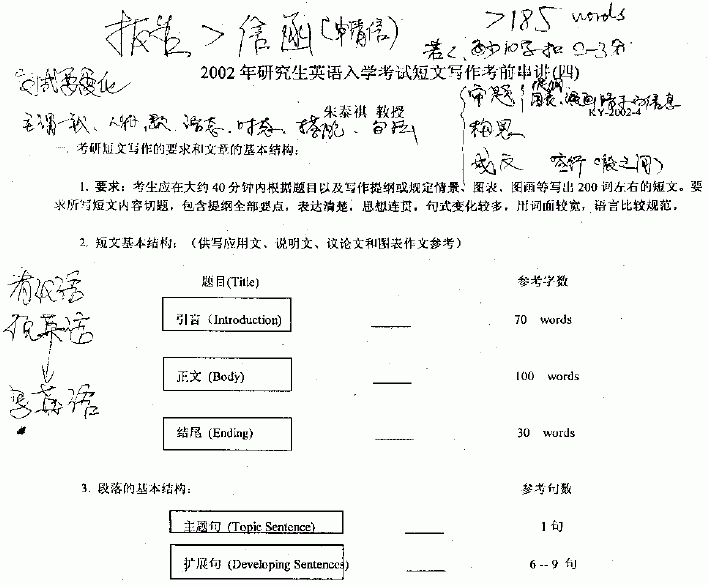 报告 > 信函(申请信)
>185 words
2002 年研究生英语入学考试短文写作考前串讲(四)
句式要变化
审题
图表、漫画
朱泰祺 教授
KY-2002-4
主谓一致、人称、数、语态、时态、搭配
构思
成文
一. 考研短文写作的要求和文章的基本结构:
1. 要求: 考生应在大约 40 分钟内根据题目以及写作提纲或规定情景、图表、图画等写出 200 词左右的短文。要
求所写短文内容切题, 包含提纲全部要点, 表达清楚, 思想连贯, 句式变化较多, 用词面较宽, 语言比较规范。
2. 短文基本结构: (供写应用文、说明文、议论文和图表作文参考)
题目(Title) 参考字数
引言 (Introduction) 70 words
正文 (Body) 100 words
结尾 (Ending) 30 words
英语
写英语
3. 段落的基本结构: 参考句数
主题句 (Topic Sentence) 1 句
扩展句 (Developing Sentences) 6 -- 9 句